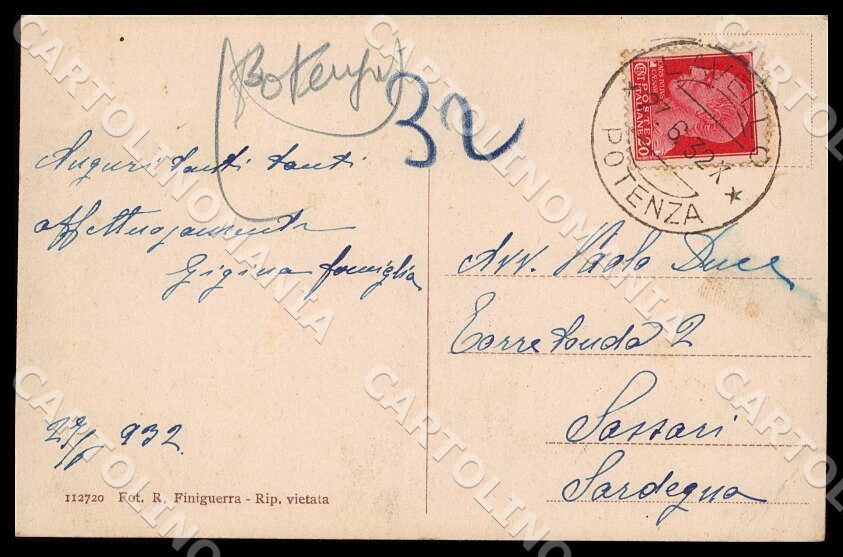 Potenza
32
Auguri tanti tanti
affettuosamente
Gigina famiglia
27/6 932
112720 Fot. R. Finiguerra - Rip. vietata
POSTE
ITALIANE
CENT 20
LAVELLO
27.6.32 X
* POTENZA *
Avv. Paolo Duce
Torre tonda 2
Sassari
Sardegna
CARTOLINOMANIA